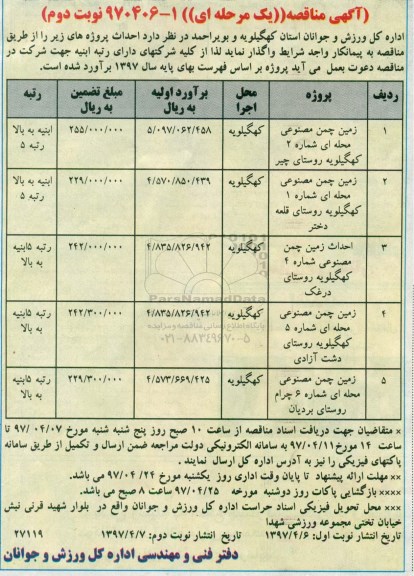 (آگهی مناقصه((یک مرحله ای)) ۱-۹۷۰۴۰۶ نوبت دوم)
اداره کل ورزش و جوانان استان کهگیلویه و بویراحمد در نظر دارد احداث پروژه های زیر را از طریق
مناقصه به پیمانکار واجد شرایط واگذار نماید لذا از کلیه شرکتهای دارای رتبه ابنیه جهت شرکت در
مناقصه دعوت بعمل می آید پروژه بر اساس فهرست بهای پایه سال ۱۳۹۷ برآورد شده است.
ردیف پروژه محل اجرا برآورد اولیه به ریال مبلغ تضمین به ریال رتبه
۱ زمین چمن مصنوعی محله ای شماره ۲ کهگیلویه روستای چیر کهگیلویه ۵/۰۹۷/۰۶۲/۴۵۸ ۲۵۵/۰۰۰/۰۰۰ ابنیه به بالا رتبه ۵
۲ زمین چمن مصنوعی محله ای شماره ۱ کهگیلویه روستای قلعه دختر کهگیلویه ۴/۵۷۰/۸۵۰/۴۳۹ ۲۲۹/۰۰۰/۰۰۰ ابنیه به بالا رتبه ۵
۳ احداث زمین چمن مصنوعی شماره ۴ کهگیلویه روستای درغک کهگیلویه ۴/۸۳۵/۸۲۶/۹۴۲ ۲۴۲/۰۰۰/۰۰۰ رتبه ۵ابنیه به بالا
۴ زمین چمن مصنوعی محله ای شماره ۵ کهگیلویه روستای دشت آزادی کهگیلویه ۴/۸۳۵/۸۲۶/۹۴۲ ۲۴۲/۳۰۰/۰۰۰ رتبه ۵ابنیه به بالا
۵ زمین چمن مصنوعی محله ای شماره ۶ چرام روستای بردیان کهگیلویه ۴/۵۷۳/۶۶۹/۴۲۵ ۲۲۹/۳۰۰/۰۰۰ رتبه ۵ابنیه به بالا
ParsNamadData
پایگاه اطلاع رسانی مناقصه و مزایده
۰۲۱-۸۸۳۴۹۶۷۰-۵
× متقاضیان جهت دریافت اسناد مناقصه از ساعت ۱۰ صبح روز پنج شنبه شنبه مورخ ۹۷/۰۴/۰۷ تا
ساعت ۱۴ مورخ ۹۷/۰۴/۱۱ به سامانه الکترونیکی دولت مراجعه ضمن ارسال و تکمیل از طریق سامانه
پاکتهای فیزیکی را نیز به آدرس اداره کل ارسال نمایند .
×× مهلت ارائه پیشنهاد تا پایان وقت اداری روز یکشنبه مورخ ۹۷/۰۴/۲۴ می باشد.
×××× بازگشایی پاکات روز دوشنبه مورخه ۹۷/۰۴/۲۵ ساعت ۸ صبح می باشد.
××× محل تحویل فیزیکی اسناد حراست اداره کل ورزش و جوانان واقع در بلوار شهید قرنی نبش
خیابان تختی مجموعه ورزشی شهدا
تاریخ انتشار نوبت اول: ۱۳۹۷/۴/۶ تاریخ انتشار نوبت دوم: ۱۳۹۷/۴/۷ ۲۷۱۱۹
دفتر فنی و مهندسی اداره کل ورزش و جوانان